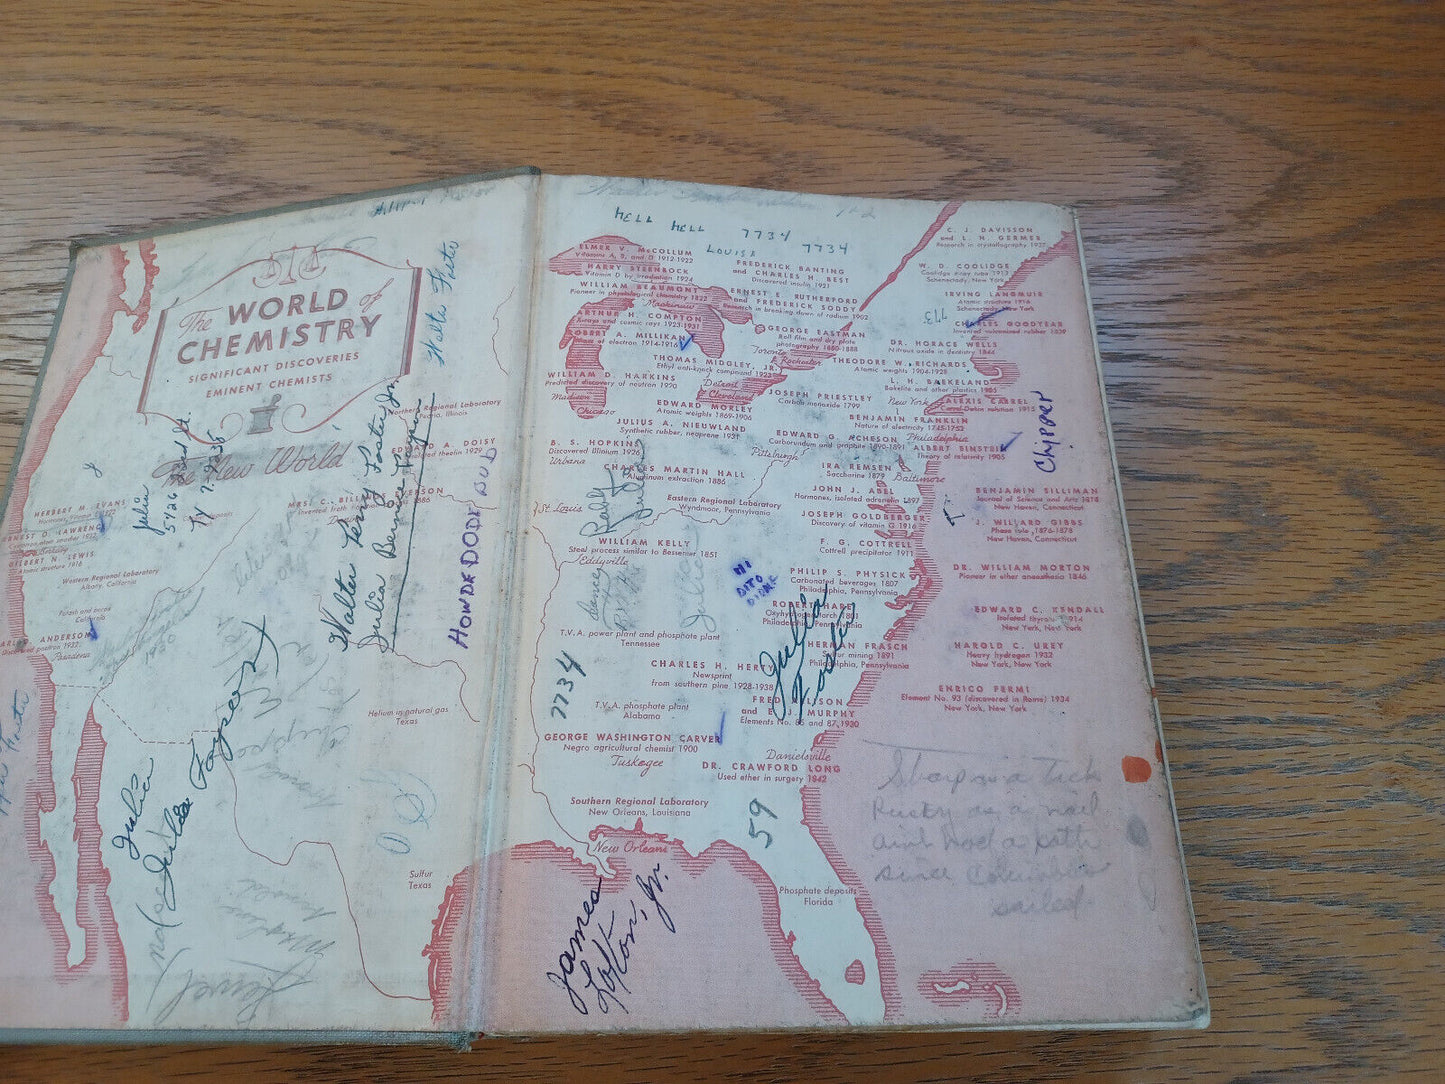 The WORLD of
CHEMISTRY
SIGNIFICANT DISCOVERIES
EMINENT CHEMISTS
The New World
Northern Regional Laboratory
Peoria, Illinois
EDWARD A. DOISY
HERBERT M. EVANS
ERNEST O. LAWRENCE
GILBERT N. LEWIS
Atomic structure 1916
Western Regional Laboratory
Albany, California
Potash and borax
California
CARL D. ANDERSON
Discovered positron 1932
Pasadena
Helium in natural gas
Texas
Sulfur
Texas
Walter Foster
Julia
5426
Ty 7.9238
Walter Perry Foster, Jr.
Julia Bernice
HOWDEDODE BUD
Julia
Julia
HELL HELL 7734 7734
LOUISA
ELMER V. McCOLLUM
Vitamins A, B, and D 1912-1922
HARRY STEENBOCK
Vitamin D by irradiation 1924
WILLIAM BEAUMONT
Pioneer in physiological chemistry 1822
Mackinaw
ARTHUR H. COMPTON
X-rays and cosmic rays 1923-1931
ROBERT A. MILLIKAN
Charge of electron 1914-1916
WILLIAM D. HARKINS
Predicted discovery of neutron 1920
Madison
Chicago
FREDERICK BANTING
and CHARLES H. BEST
Discovered insulin 1921
ERNEST E. RUTHERFORD
and FREDERICK SODDY
Research in breaking down of radium 1902
GEORGE EASTMAN
Roll film and dry plate
photography 1880-1888
Toronto
Rochester
THOMAS MIDGLEY, JR.
Ethyl anti-knock compound 1922
Detroit
Cleveland
EDWARD MORLEY
Atomic weights 1869-1906
JULIUS A. NIEUWLAND
Synthetic rubber, neoprene 1931
B. S. HOPKINS
Discovered Illinium 1926
Urbana
CHARLES MARTIN HALL
Aluminum extraction 1886
St. Louis
Eastern Regional Laboratory
Wyndmoor, Pennsylvania
WILLIAM KELLY
Steel process similar to Bessemer 1851
Eddyville
C. J. DAVISSON
and L. H. GERMER
Research in crystallography 1927
W. D. COOLIDGE
Coolidge X-ray tube 1913
Schenectady, New York
IRVING LANGMUIR
Atomic structure 1916
Schenectady, New York
773
CHARLES GOODYEAR
Invented vulcanized rubber 1839
DR. HORACE WELLS
Nitrous oxide in dentistry 1844
THEODORE W. RICHARDS
Atomic weights 1904-1928
L. H. BAEKELAND
Bakelite and other plastics 1905
New York
ALEXIS CARREL
Carrel-Dakin solution 1915
JOSEPH PRIESTLEY
Carbon monoxide 1799
BENJAMIN FRANKLIN
Nature of electricity 1745-1752
Philadelphia
ALBERT EINSTEIN
Theory of relativity 1905
EDWARD G. ACHESON
Carborundum and graphite 1890-1891
Pittsburgh
IRA REMSEN
Saccharine 1879
Baltimore
JOHN J. ABEL
Hormones, isolated adrenalin 1897
JOSEPH GOLDBERGER
Discovery of vitamin G 1916
F. G. COTTRELL
Cottrell precipitator 1911
PHILIP S. PHYSICK
Carbonated beverages 1807
Philadelphia, Pennsylvania
ROBERT HARE
Oxyhydrogen torch 1801
Philadelphia, Pennsylvania
HERMAN FRASCH
Sulfur mining 1891
Philadelphia, Pennsylvania
BENJAMIN SILLIMAN
Journal of Science and Arts 1818
New Haven, Connecticut
J. WILLARD GIBBS
Phase rule, 1876-1878
New Haven, Connecticut
DR. WILLIAM MORTON
Pioneer in ether anaesthesia 1846
EDWARD C. KENDALL
Isolated thyroxin 1914
New York, New York
HAROLD C. UREY
Heavy hydrogen 1932
New York, New York
ENRICO FERMI
Element No. 93 (discovered in Rome) 1934
New York, New York
Chipper
HI
DITO
Julia
Foster
T.V.A. power plant and phosphate plant
Tennessee
CHARLES H. HERTY
Newsprint
from southern pine, 1928-1938
7734
T.V.A. phosphate plant
Alabama
FRED ALLISON
and E. J. MURPHY
Elements No. 85 and 87, 1930
GEORGE WASHINGTON CARVER
Negro agricultural chemist 1900
Tuskegee
Danielsville
DR. CRAWFORD LONG
Used ether in surgery 1842
Southern Regional Laboratory
New Orleans, Louisiana
New Orleans
59
Phosphate deposits
Florida
James
Lofton, Jr.
Sharp as a Tack
Rusty as a nail
aint had a bath
since Columbus
sailed.